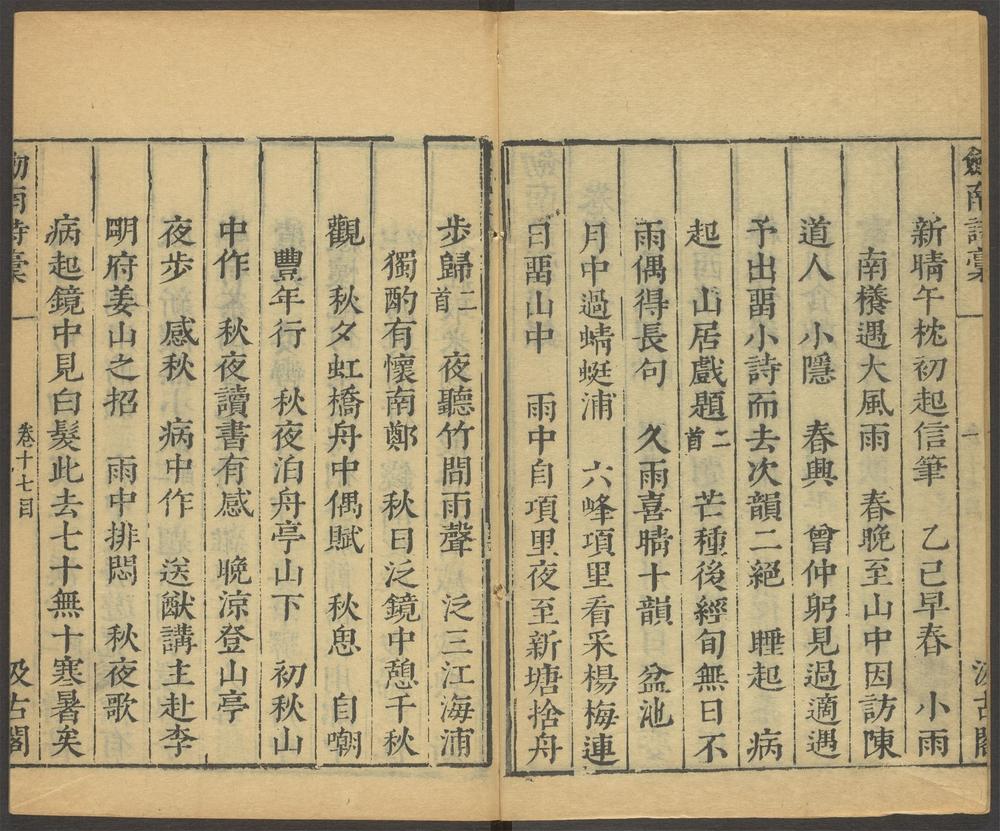 劍南詩稾 一 汲古閣
新晴午枕初起信筆 乙己早春 小雨
南檥遇大風雨 春晚至山中因訪陳
道人 小隱 春興 曾仲躬見過適遇
予出畱小詩而去次韻二絕 睡起 病
起 山居戲題二首 芒種後經旬無日不
雨偶得長句 久雨喜晴十韻 盆池
月中過蜻蜓浦 六峰項里看采楊梅連
日畱山中 雨中自項里夜至新塘捨舟
步歸二首 夜聽竹間雨聲 泛三江海浦
獨酌有懷南鄭 秋日泛鏡中憩千秋
觀 秋夕虹橋舟中偶賦 秋思 自嘲
豐年行 秋夜泊舟亭山下 初秋山
中作 秋夜讀書有感 晚涼登山亭
夜步 感秋 病中作 送猷講主赴李
明府姜山之招 雨中排悶 秋夜歌
病起鏡中見白髮此去七十無十寒暑矣
劒南詩稾 卷十七目 汲古閣